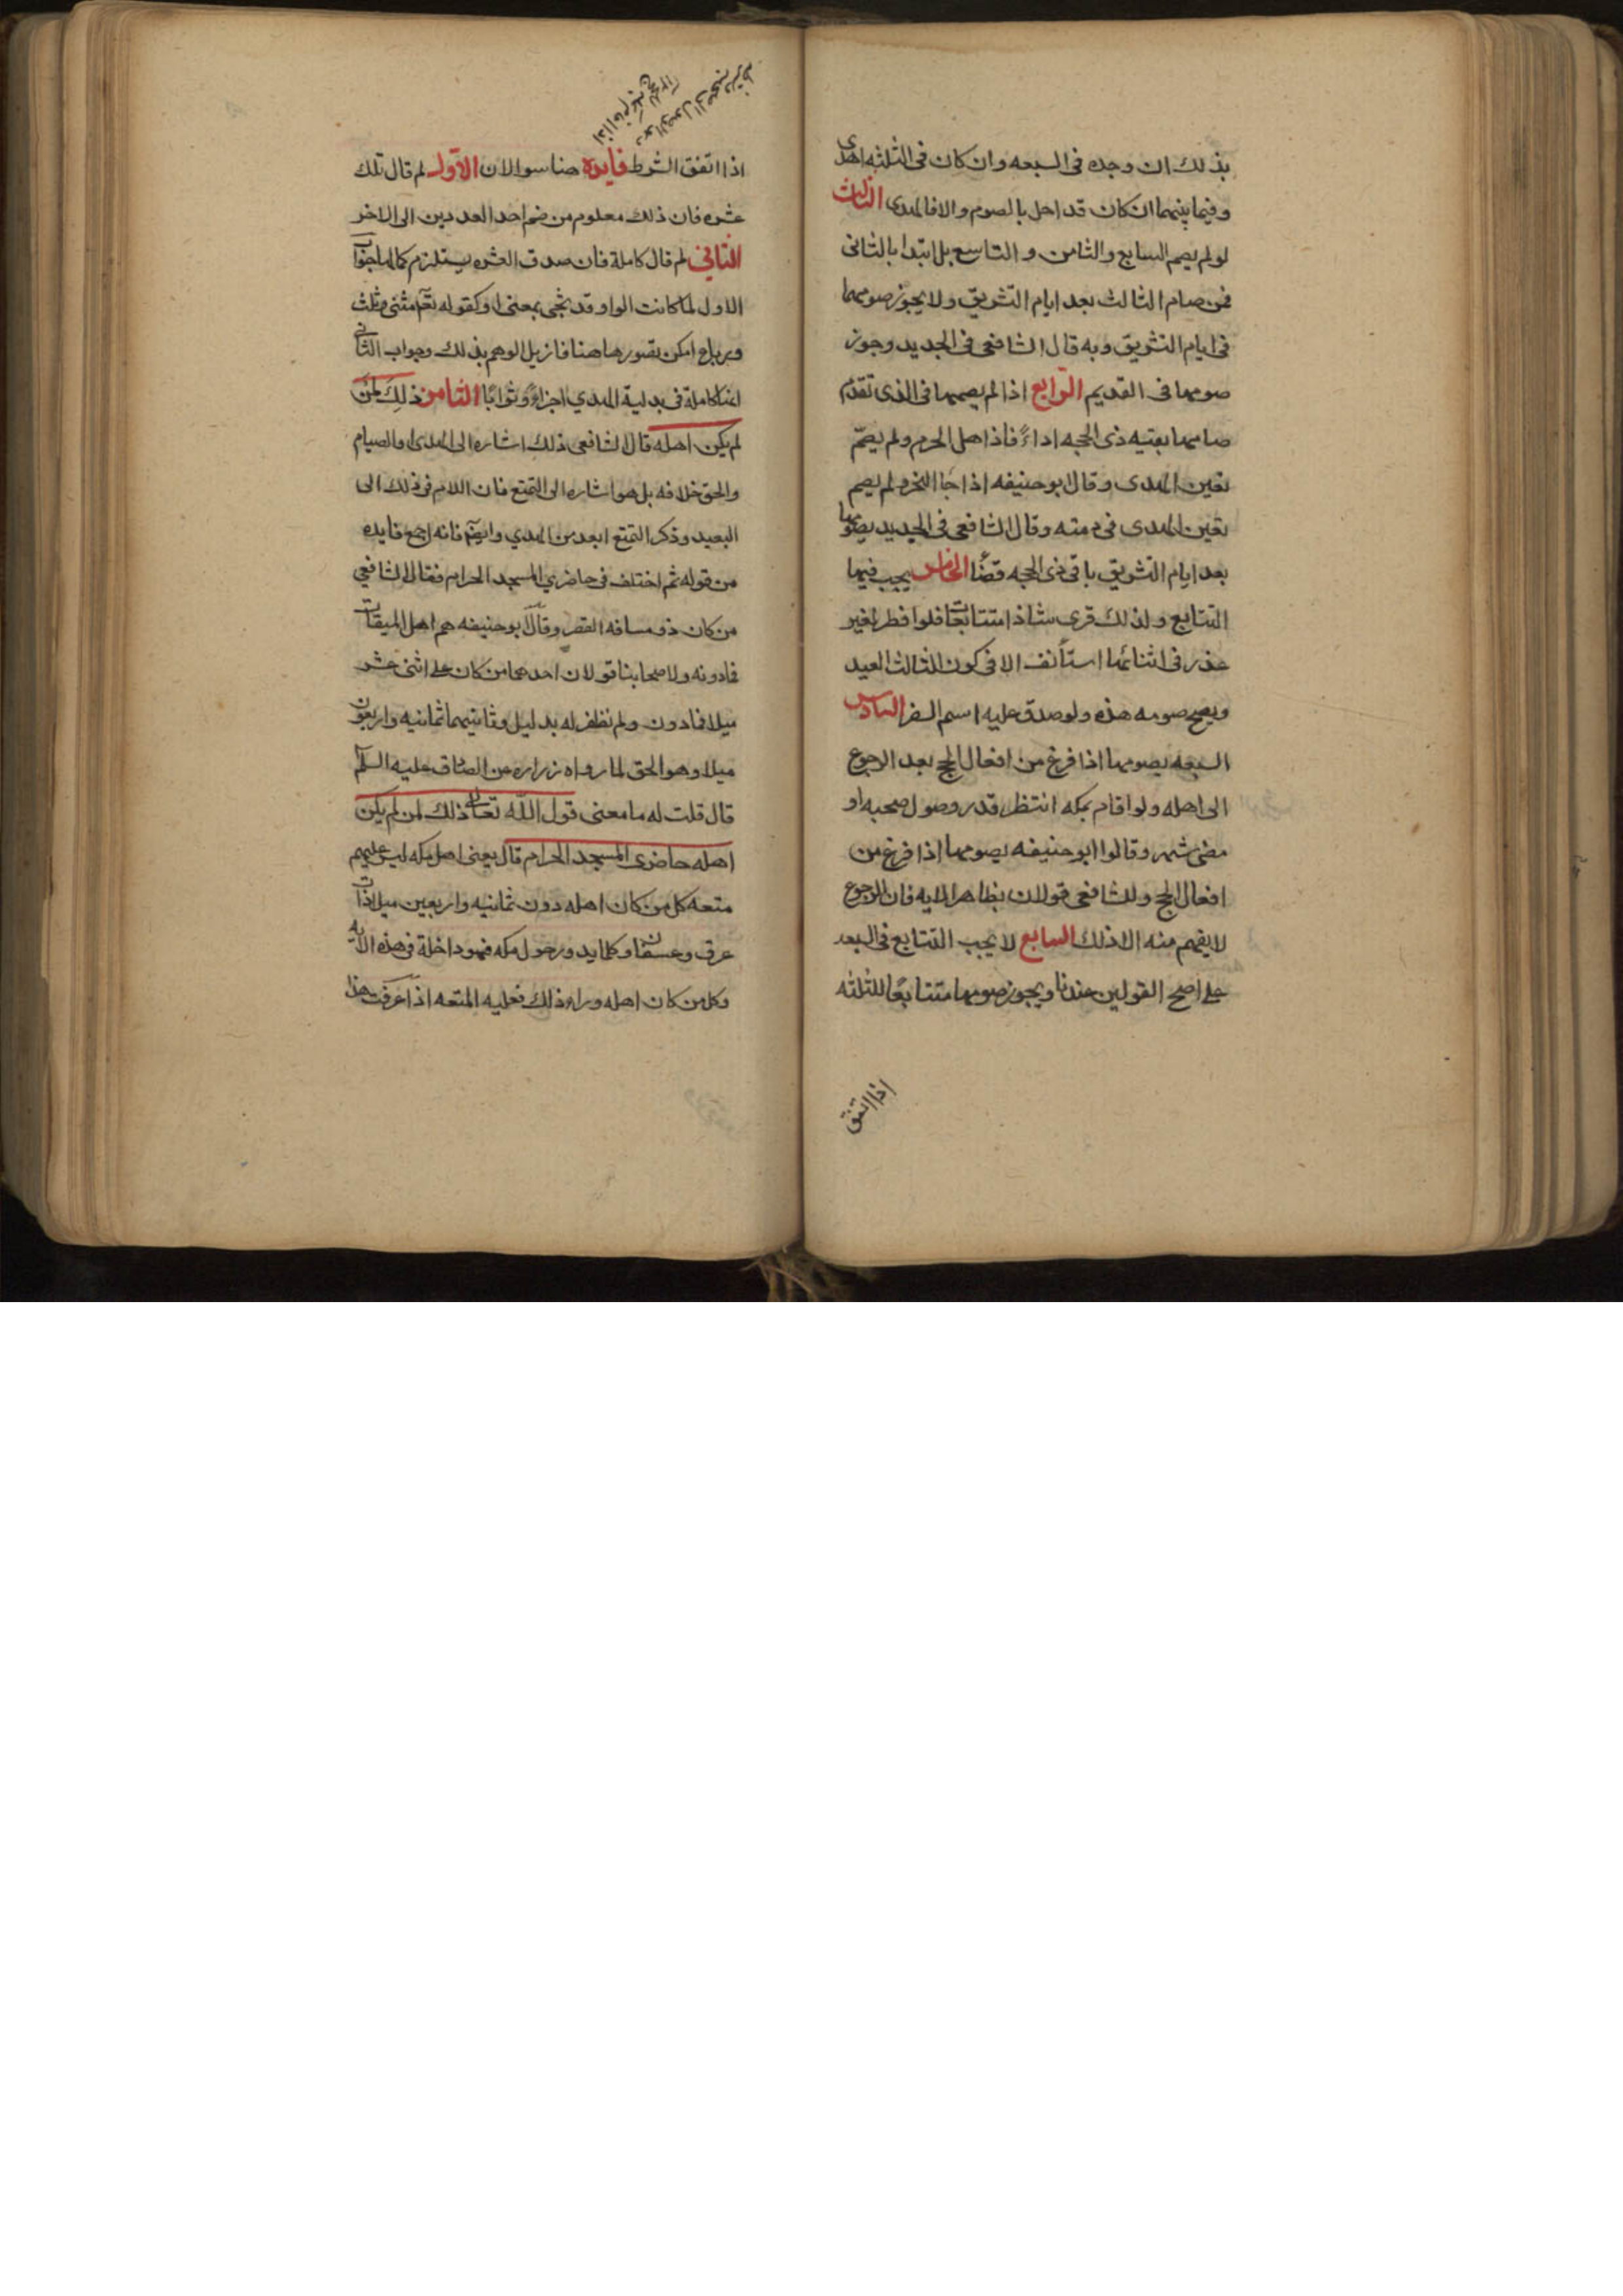 بذلك ان وجده فى السبعه وان كان فى الثلثه اهدى
وفيما بينهما ان كان قد احل بالصوم والا فالهدى الثالث
لو لم يصم السابع والثامن والتاسع بل ابتدا بالثانى
فمن صام الثالث بعد ايام التشريق ولا يجوز صومهما
فى ايام التشريق وبه قال الشافعى فى الجديد وجوز
صومها فى القديم الرابع اذا لم يصمها فى الذى تقدم
صامها بقيه ذى الحجه اداءً فاذا هل المحرم ولم يصم
تعين الهدى وقال ابو حنيفه اذا جا النحر ولم يصم
تعين الهدى فى ذمته وقال الشافعى فى الجديد يصومها
بعد ايام التشريق باقى ذى الحجه قضا الخامس يجب فيها
التتابع ولذلك قرى شاذا متتابعات فلو افطر لغير
عذر فى اثنائها استأنف الا فى كون الثالث العيد
ويصح صومه هذه ولو صدق عليه اسم السفر السادس
السبعه يصومها اذا فرغ من افعال الحج بعد الرجوع
الى اهله ولو اقام بمكه انتظر قدر وصول صحبه او
مضى شهر وقالوا ابو حنيفه يصومها اذا فرغ من
افعال الحج وللشافعى قولان بظاهر الايه فان الرجوع
لا يفهم منه الا ذلك السابع لا يجب التتابع فى السبعه
على اصح القولين عندنا ويجوز صومها متتابعًا للثلثه
اذا اتفق
اذا اتفق الشرط فايدة هنا سوالان الاول لم قال تلك
عشره فان ذلك معلوم من ضم احد العددين الى الاخر
الثانى لم قال كاملة فان صدق العشره يستلزم كمالها جواب
الاول لما كانت الواو قد تجى بمعنى او كقوله تعم مثنى وثلث
ورباع امكن تصورها هنا فازيل الوهم بذلك وجواب الثانى
انها كاملة فى بدلية الهدي اجزاءً وثوابًا الثامن ذلك لمن
لم يكن اهله قال الشافعى ذلك اشاره الى الهدى او الصيام
والحق خلافه بل هو اشاره الى التمتع فان اللام فى ذلك الى
البعيد وذكر التمتع ابعد من الهدي وايضم فانه اجمع فايده
من قوله ثم اختلف فى حاضري المسجد الحرام فقال الشافعي
من كان ذو مسافه القصر وقال ابو حنيفه هم اهل الميقات
فما دونه ولاصحابنا قولان احدهما من كان على اثنى عشر
ميلا فما دون ولم نظفر له بدليل وثانيهما ثمانيه واربعون
ميلا وهو الحق لما رواه زراره عن الصادق عليه السلم
قال قلت له ما معنى قول الله تعالى ذلك لمن لم يكن
اهله حاضرى المسجد الحرام قال يعنى اهل مكه ليس عليهم
متعه كل من كان اهله دون ثمانيه واربعين ميلا ذات
عرق وعسفان وكلما يدور حول مكه فهو داخلة فى هذه الايه
وكل من كان اهله وراء ذلك فعليه المتعه اذا عرفت هذا